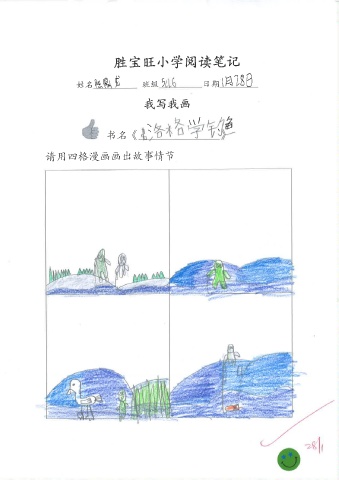 胜宝旺小学阅读笔记
姓名 班级 5J6 日期 1月28日
我写我画
书名《洛格学钓鱼
请用四格漫画画出故事情节
28/1